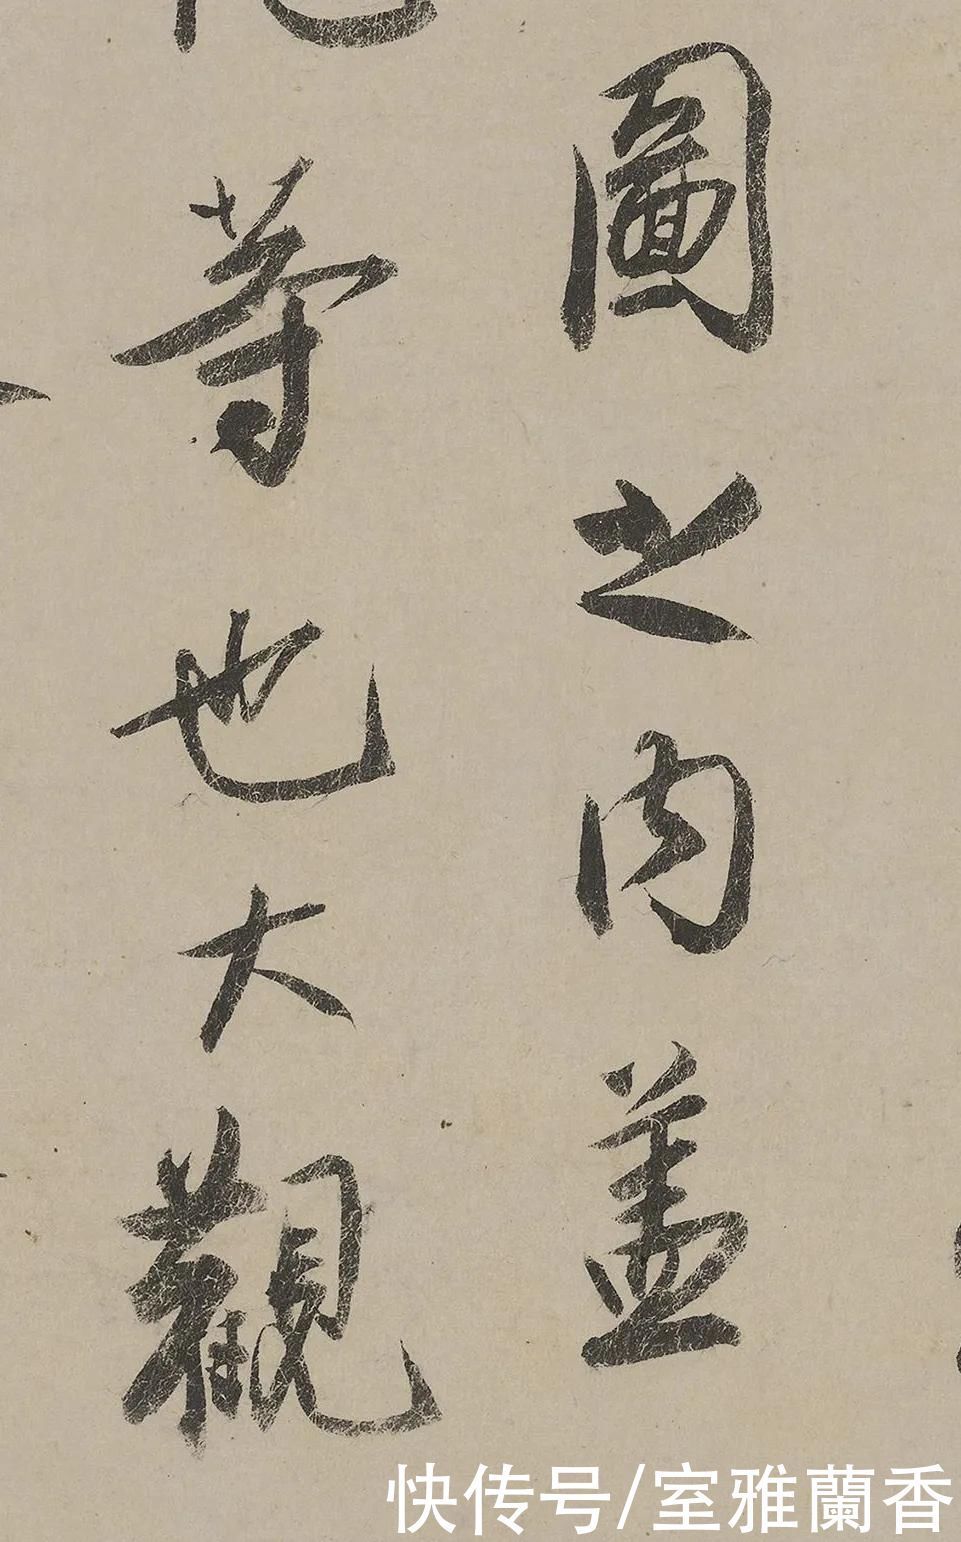 圖之内盖
等也大觀
快传号/室雅蘭香